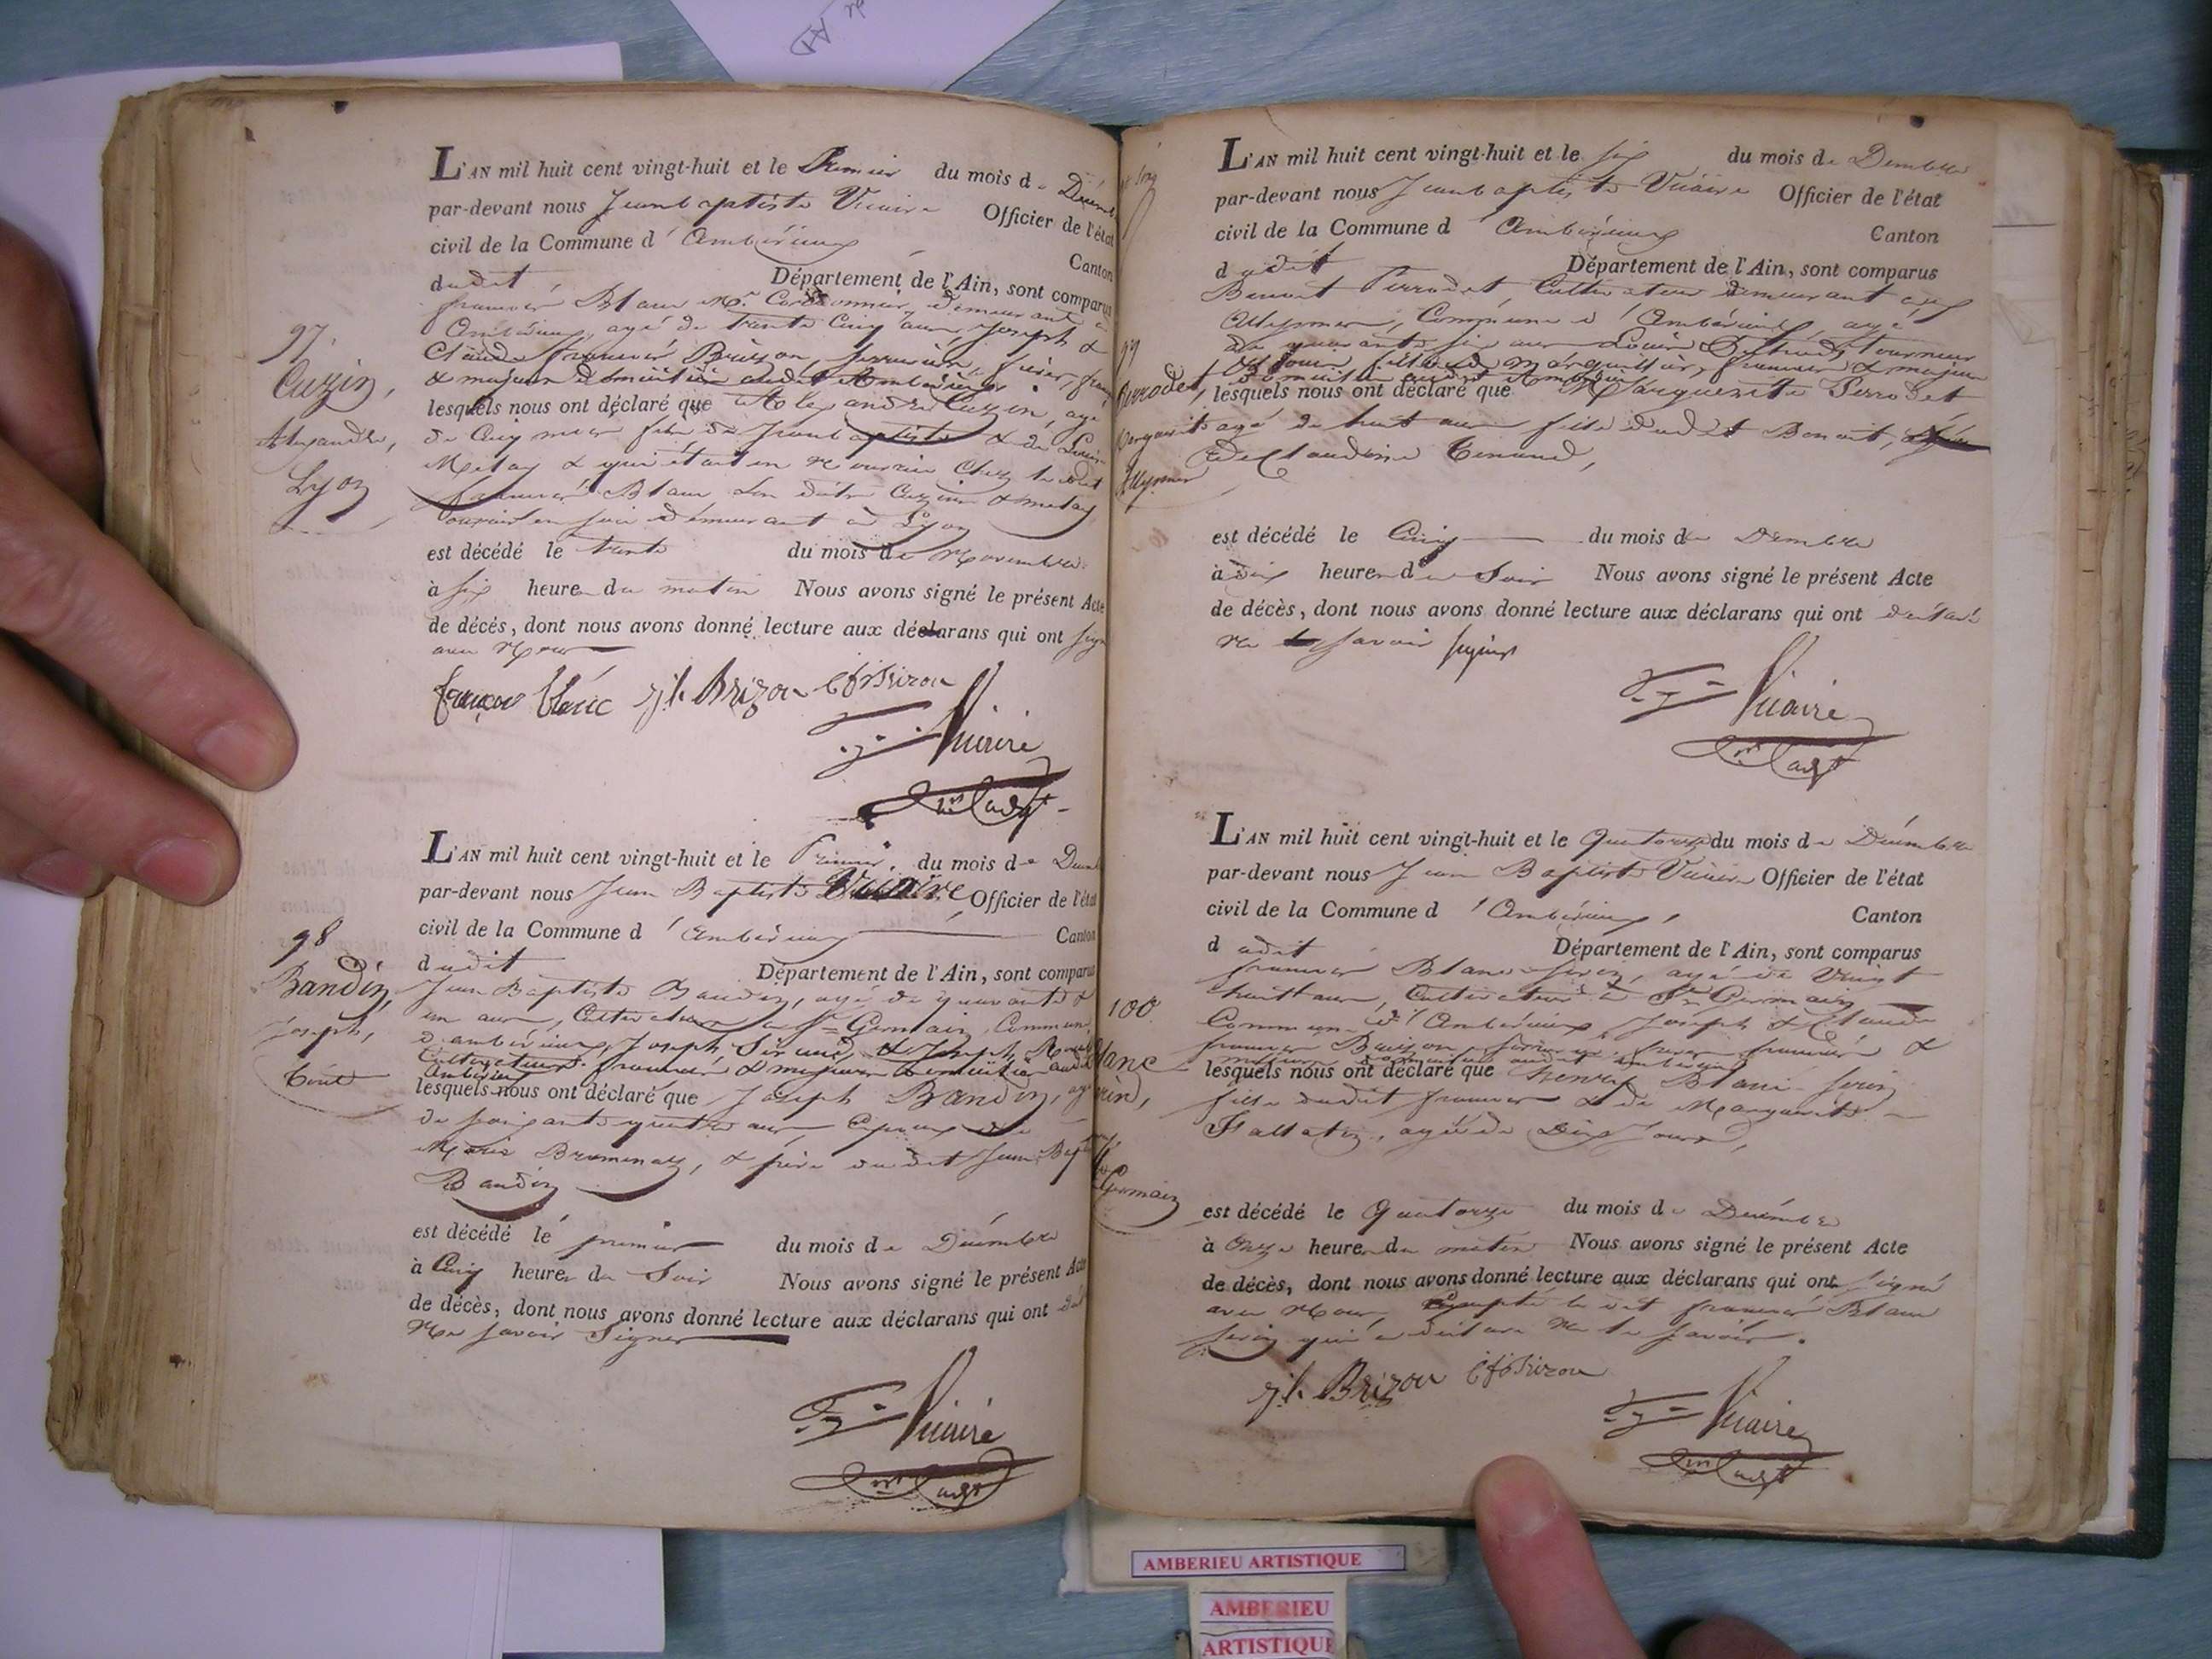 L'AN mil huit cent vingt-huit et le Premier du mois de Décemb
par-devant nous Jean baptiste Vicaire Officier de l'état
civil de la Commune d'Ambérieux
Canton
dudit Département de l'Ain, sont comparus
françois Blanc Mr Cordonnier, demeurant à
Ambérieux, agé de trente Cinq ans, Joseph &
Claude françois Brizon, frères,
& majeurs domiciliés audit Ambérieux
lesquels nous ont déclaré que Alexandre Cuzin, agé
de Cinq mois fils de Jean baptiste & de
Metay & qui était en nourrice Chez ledit
françois Blanc Les dits Cuzin & metay
en soie demeurant à Lyon
est décédé le trente du mois de Novembre
à six heure du matin Nous avons signé le présent Acte
de décés, dont nous avons donné lecture aux déclarans qui ont signé
avec Nous
françois blanc J h Brizon C f Brizon
Vicaire
97
Cuzin,
Alexandre,
Lyon
L'AN mil huit cent vingt-huit et le Premier du mois de Décem
par-devant nous Jean Baptiste Vicaire Officier de l'état
civil de la Commune d'Ambérieux Canton
dudit Département de l'Ain, sont comparus
Jean Baptiste Bandin, agé de quarante &
un ans, Cultivateur à St Germain, Commune
d'ambérieux, Joseph Sirand, & Joseph
Cultivateurs françois & majeurs domiciliés audit
Ambérieux
lesquels nous ont déclaré que Joseph Bandin, agé
de soixante quatre ans, Epoux de
Marie Brumenaz, & père dudit Jean Bapt
Bandin
est décédé le premier du mois de Décembre
à Cinq heure du Soir Nous avons signé le présent Acte
de décès, dont nous avons donné lecture aux déclarans qui ont
Ne savoir Signer
Vicaire
98
Bandin,
Joseph,
L'AN mil huit cent vingt-huit et le six du mois de Décembre
par-devant nous Jean baptiste Vicaire Officier de l'état
civil de la Commune d'Ambérieux Canton
dudit Département de l'Ain, sont comparus
Benoit Perrodet Cultivateur demeurant aux
Allymes, Commune d'Ambérieux, agé
de quarante six ans Louis tourneur
marguillier, françois & majeurs
domiciliés audit Ambérieux
lesquels nous ont déclaré que Marguerite Perrodet
agé de huit ans fille dudit Benoit,
de Claudine Tenand,
est décédé le Cinq du mois de Décembre
à dix heure du Soir Nous avons signé le présent Acte
de décès, dont nous avons donné lecture aux déclarans qui ont déclaré
ne savoir signer
Vicaire
99
Perrodet,
Marguerite
Allymes
L'AN mil huit cent vingt-huit et le Quatorze du mois de Décembre
par-devant nous Jean Baptiste Vicaire Officier de l'état
civil de la Commune d'Ambérieux, Canton
dudit Département de l'Ain, sont comparus
françois Blanc-ferin, agé de Vingt
huit ans, Cultivateur à St Germain
Commune d'Ambérieux, Joseph & Claude
françois Brizon, frères françois &
majeurs domiciliés audit ambérieux
lesquels nous ont déclaré que Blanc-ferin
fille dudit françois & de Marguerite
agée de Dix Jours,
est décédé le Quatorze du mois de Décembre
à Onze heure du matin Nous avons signé le présent Acte
de décès, dont nous avons donné lecture aux déclarans qui ont signé
avec Nous, Excepté le dit françois Blanc
ferin qui a déclaré ne le savoir.
J h Brizon C f Brizon
Vicaire
100
lanc
rin,
Germain
AMBERIEU ARTISTIQUE
AMBERIEU
ARTISTIQUE